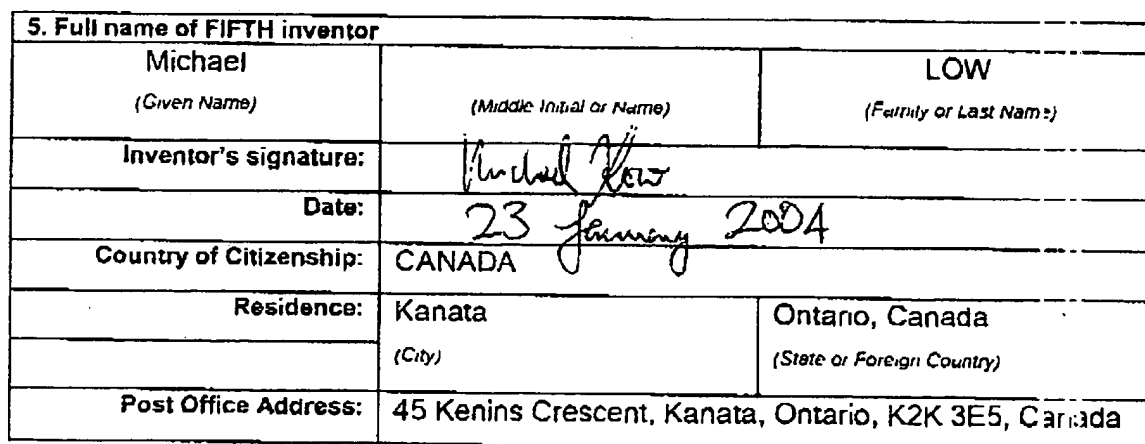 5. Full name of FIFTH inventor
Michael LOW
(Given Name) (Middle Initial or Name) (Family or Last Name)
Inventor's signature: Michael Low
Date: 23 January 2004
Country of Citizenship: CANADA
Residence: Kanata Ontario, Canada
(City) (State or Foreign Country)
Post Office Address: 45 Kenins Crescent, Kanata, Ontario, K2K 3E5, Canada